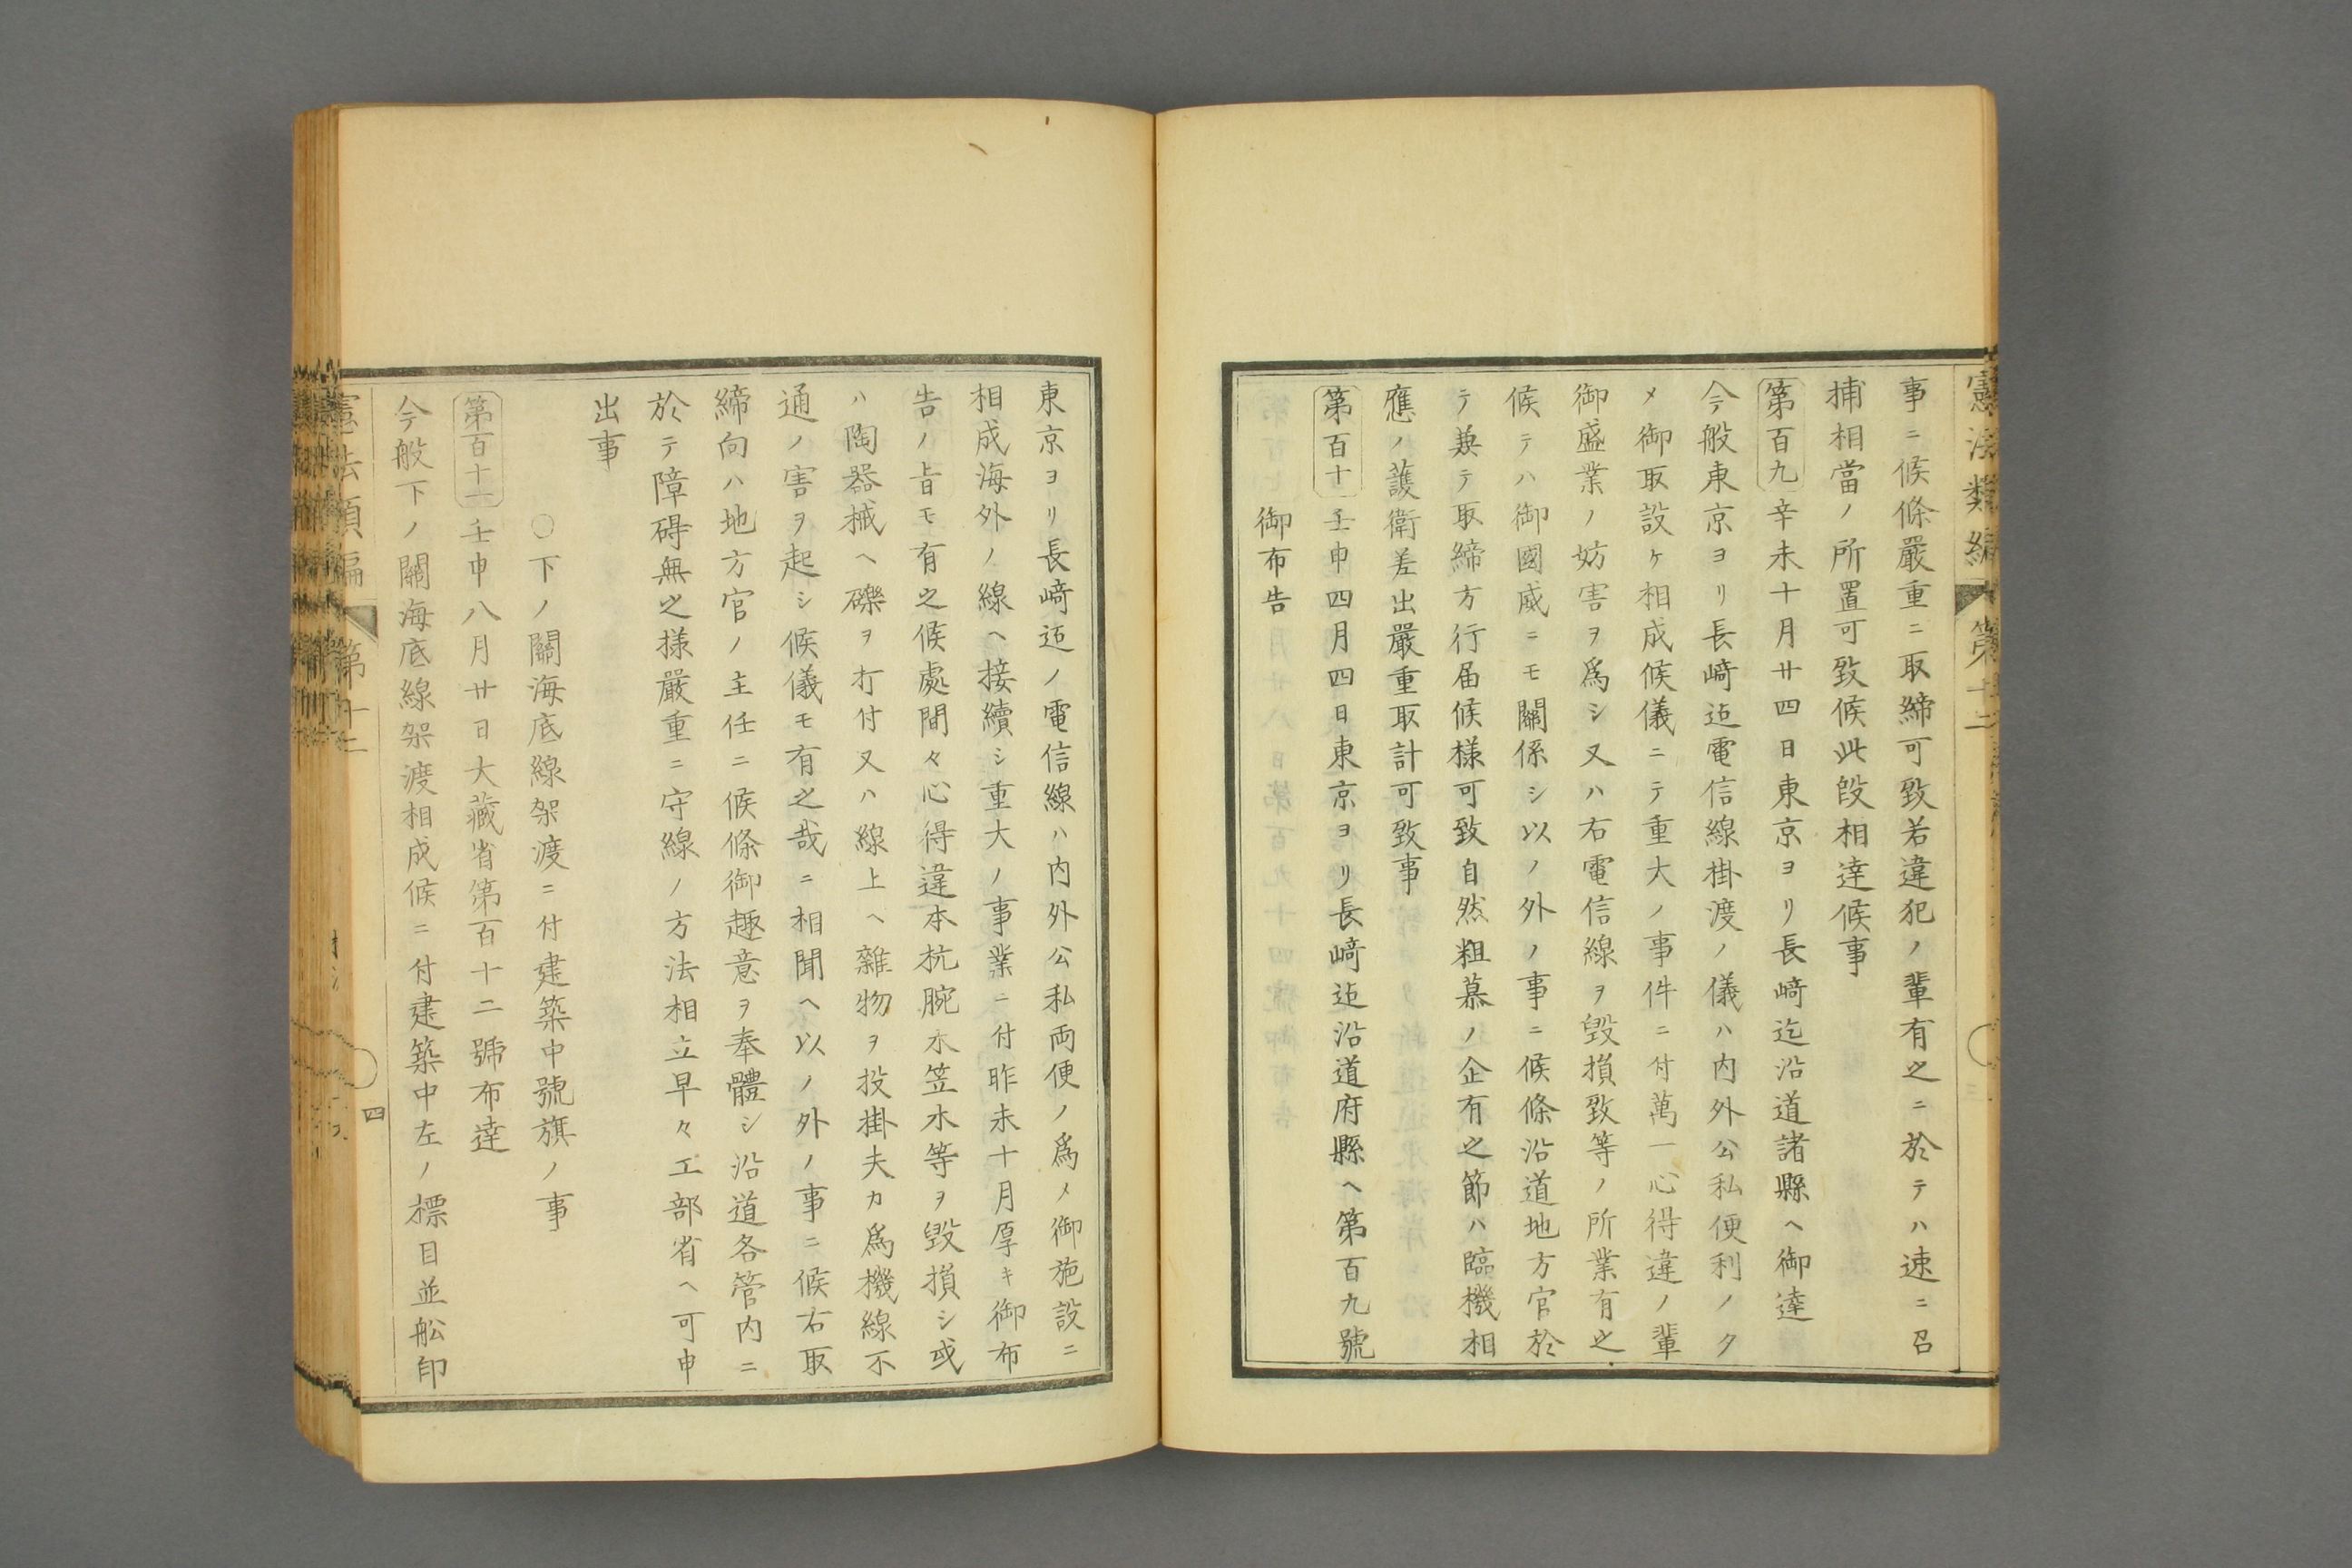 憲法類編
第十二
事ニ候條嚴重ニ取締可致若違犯ノ輩有之ニ於テハ速ニ召
捕相當ノ所置可致候此段相達候事
第百九 辛未十月廿四日東京ヨリ長﨑迄沿道諸縣ヘ御達
今般東京ヨリ長﨑迄電信線掛渡ノ儀ハ内外公私便利ノタ
メ御取設ケ相成候儀ニテ重大ノ事件ニ付萬一心得違ノ輩
御盛業ノ妨害ヲ爲シ又ハ右電信線ヲ毀損致等ノ所業有之
候テハ御國威ニモ關係シ以ノ外ノ事ニ候條沿道地方官於
テ兼テ取締方行届候様可致自然粗慕ノ企有之節ハ臨機相
應ノ護衛差出嚴重取計可致事
第百十 壬申四月四日東京ヨリ長﨑迄沿道府縣ヘ第百九號
御布告
東京ヨリ長﨑迄ノ電信線ハ内外公私両便ノ爲メ御施設ニ
相成海外ノ線ヘ接續シ重大ノ事業ニ付昨未十月厚キ御布
告ノ旨モ有之候處間々心得違本杭腕木笠木等ヲ毀損シ或
ハ陶器械ヘ礫ヲ打付又ハ線上ヘ雜物ヲ投掛夫カ爲機線不
通ノ害ヲ起シ候儀モ有之哉ニ相聞ヘ以ノ外ノ事ニ候右取
締向ハ地方官ノ主任ニ候條御趣意ヲ奉體シ沿道各管内ニ
於テ障碍無之様嚴重ニ守線ノ方法相立早々工部省ヘ可申
出事
○下ノ關海底線架渡ニ付建築中號旗ノ事
第百十一 壬申八月廿日大藏省第百十二號布達
今般下ノ關海底線架渡相成候ニ付建築中左ノ標目並舩印
憲法類編
第十二
四